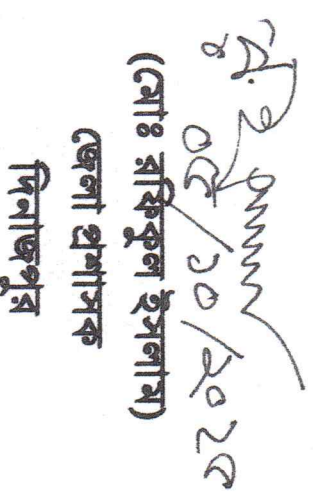 (মোঃ রফিকুল ইসলাম)
জেলা প্রশাসক
দিনাজপুর